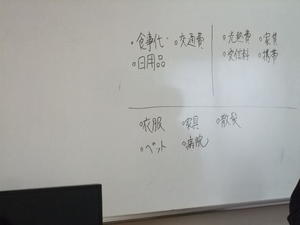 ・食事代・ ・交通費
・日用品
・光熱費 ・家賃
・受信料 ・携帯
・衣服 ・家具 ・散髪
・ペット ・病院